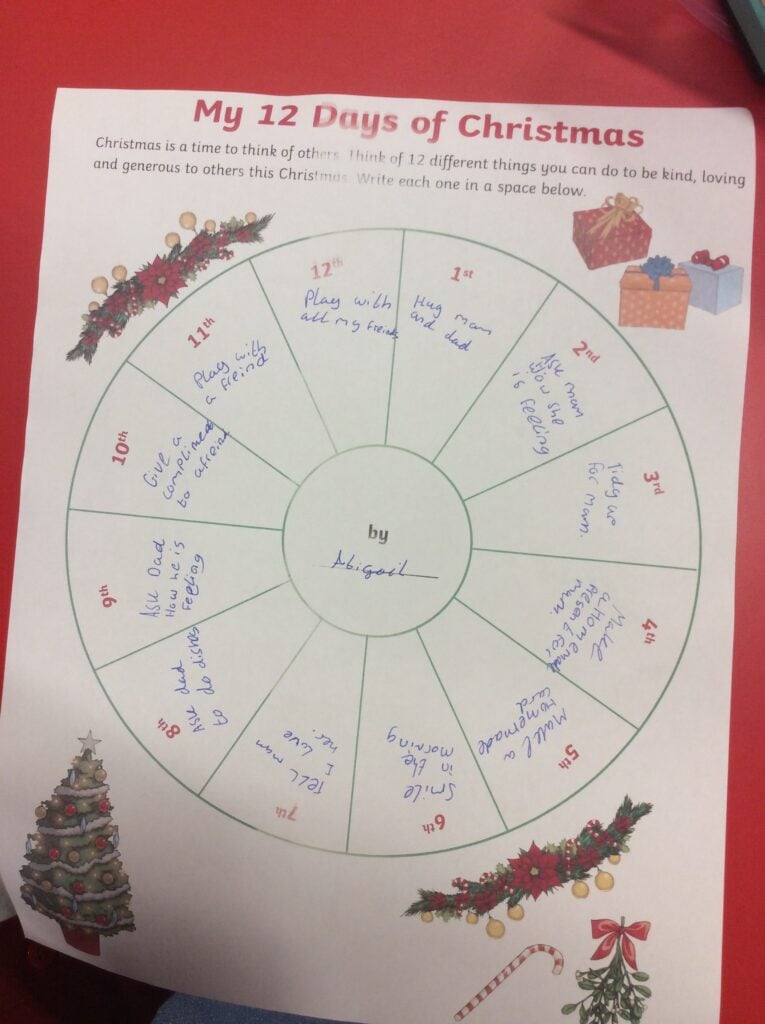 My 12 Days of Christmas
Christmas is a time to think of others. Think of 12 different things you can do to be kind, loving
and generous to others this Christmas. Write each one in a space below.
1st
Hug mam
and dad
2nd
Ask mam
How she
is feeling
3rd
Tidy up
for mam.
4th
Make
a Homemade
Present for
mam.
5th
Make a
Homemade
card
6th
Smile
in the
morning
7th
Tell mam
I love
her.
8th
Ask dad
do dishes
9th
Ask Dad
How he is
Feeling
10th
Give a
compliment
to a freind
11th
Play with
a freind
12th
Play with
all my freinds
by
Abigail